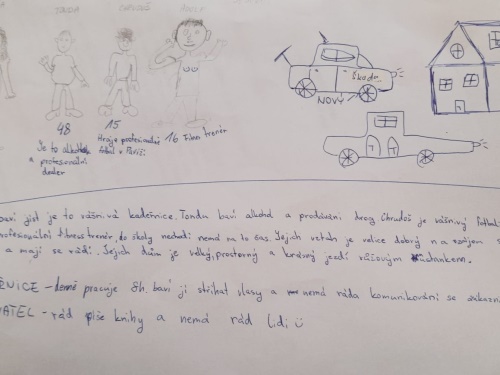 TONDA CHRUDOŠ ADOLF
48 15 16
Je to alkoholik a profesionální dealer
Hraje profesionálně fotbal v Paříži
Fitness trenér
Škoda
NOVÝ
baví jíst je to vášnivá kadeřnice. Tondu baví alkohol a prodávání drog. Chrudoš je vášnivý fotbal
profesionální fitness trenér, do školy nechodí nemá na to čas. Jejich vztah je velice dobrý
a mají se rádi. Jejich dům je velký, prostorný a krásný jezdí růžovým
- denně pracuje 8h, baví ji stříhat vlasy a nemá ráda komunikování se zákazní
- rád píše knihy a nemá rád lidi